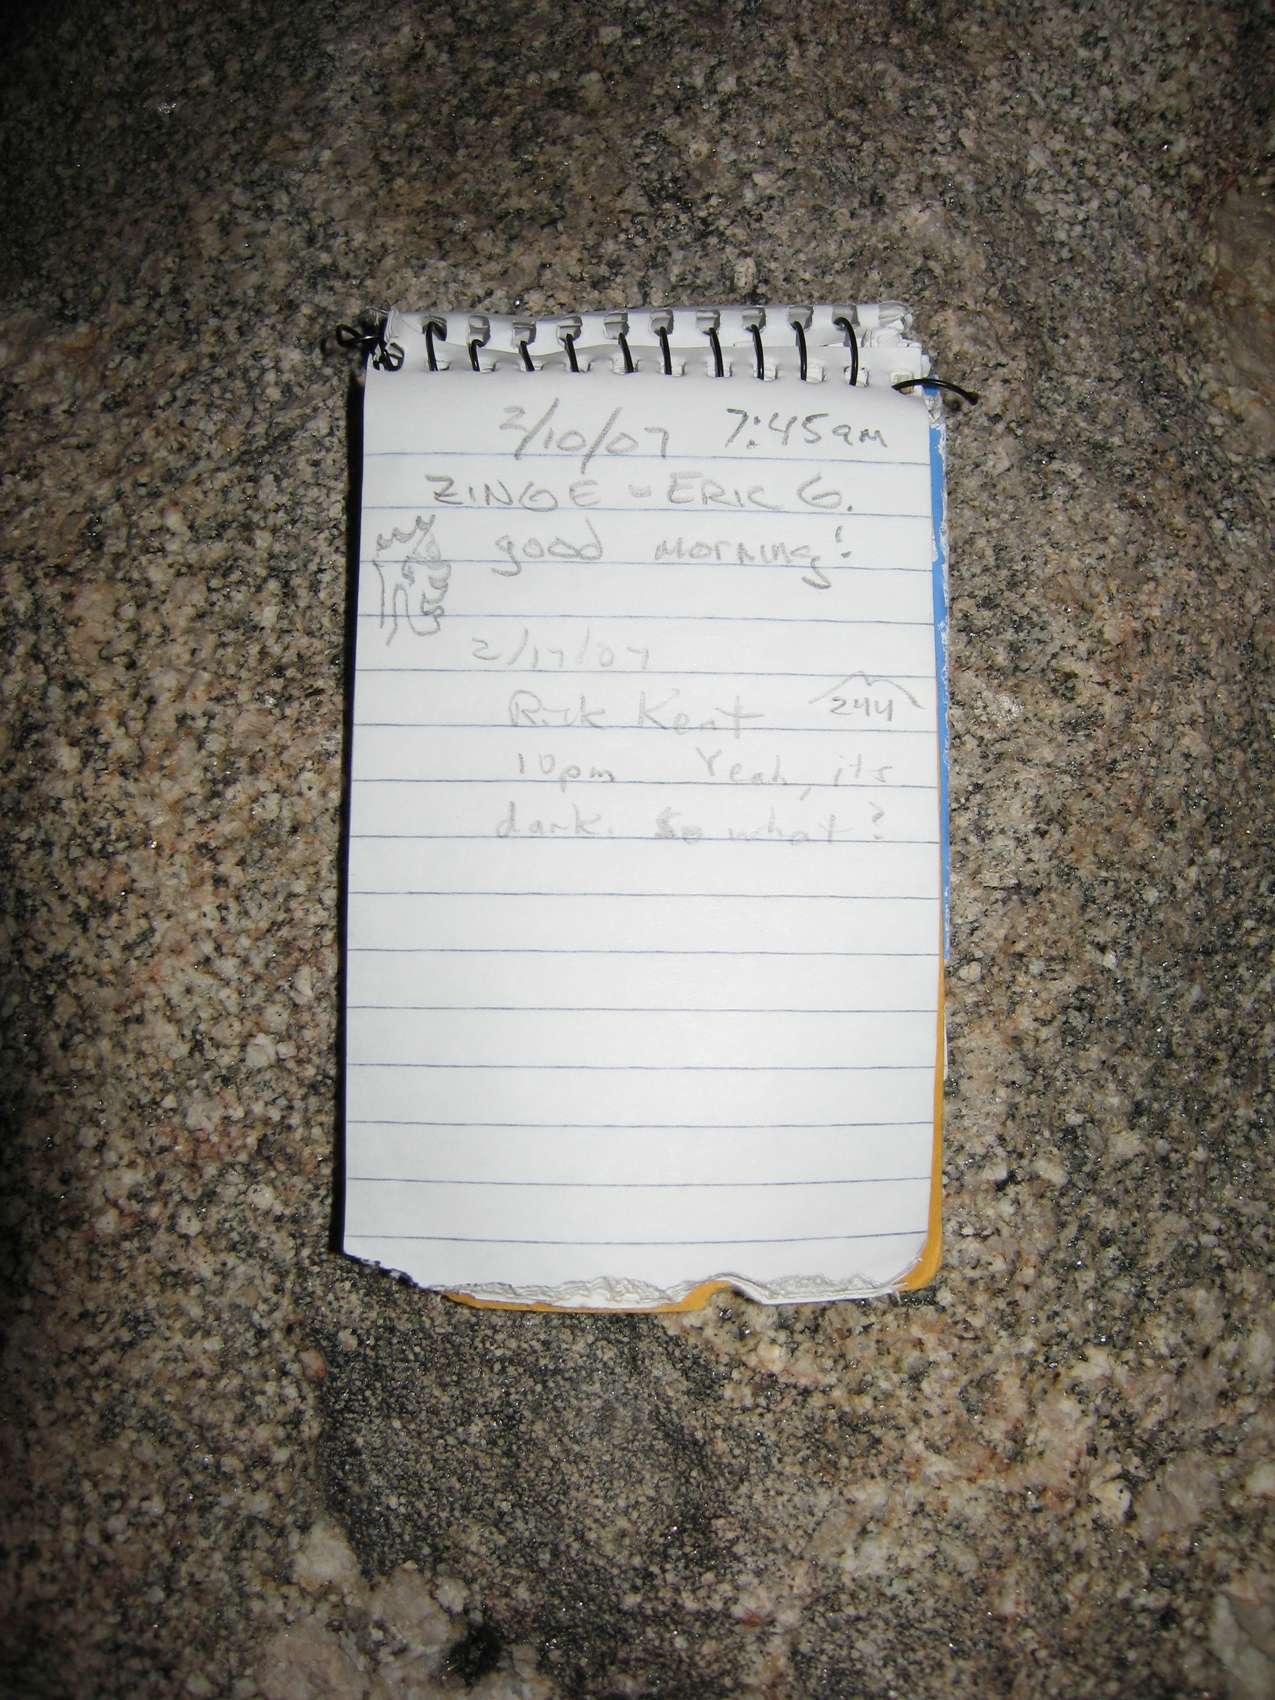 2/10/07 7:45am
ZINGE - ERIC G.
good morning!
2/17/07
Rick Kent 244
10pm Yeah, its
dark. So what?